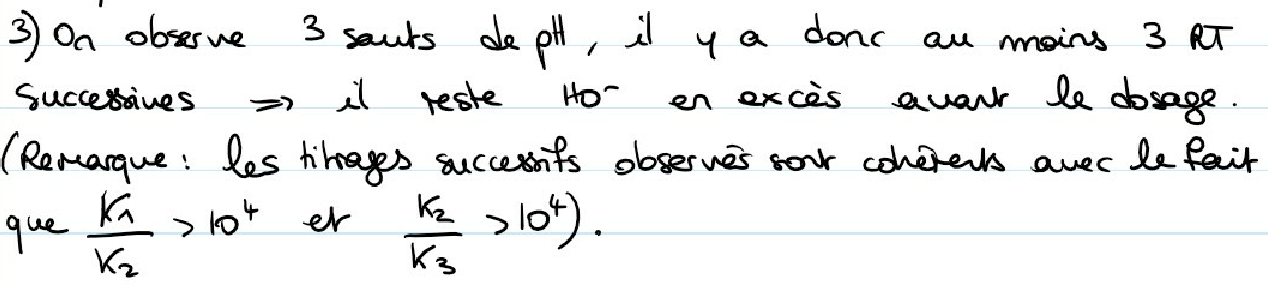 3) On observe 3 sauts de pH, il y a donc au moins 3 RT
successives => il reste HO⁻ en excès avant le dosage.
(Remarque : les titrages successifs observés sont cohérents avec le fait
que K₁/K₂ > 10⁴ et K₂/K₃ > 10⁴).